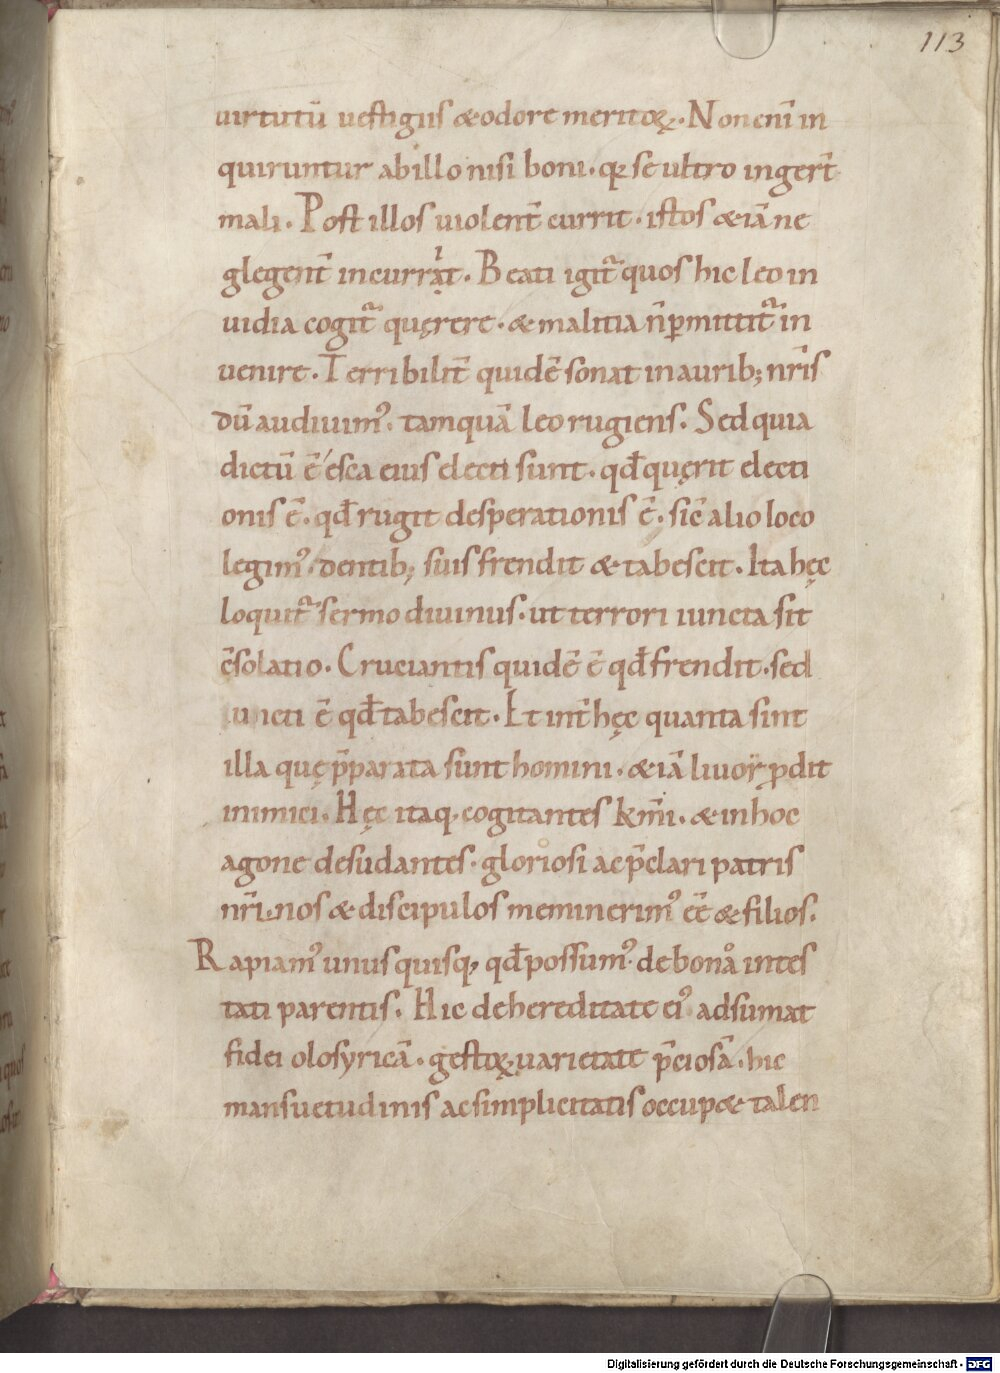 113
uirtutū uestigiis &odore meritoꝝ. Non eni̅ in
quiruntur abillo nisi boni. qꝛ se ultro inger̅t
mali. Post illos uiolent̅ currit. istos &iā ne
glegent̅ incurrat. Beati igit̅ quos hic leo in
uidia cogit̅ quęrere. & malitia n̅ ꝑmittit̅ in
uenire. Terribilit̅ quidē sonat inaurib; nr̅is
dū audiuim᾽. tamquā leo rugiens. Sed quia
dictū ē esca eius electi sunt. qd̅ quęrit electi
onis ē. qd̅ rugit desperationis ē. sic̅ alio loco
legim᾽. dentib; suis frendit & tabescit. Ita hęc
loquit̅ sermo diuinus. ut terrori iuncta sit
c̅solatio. Cruciantis quidē ē qd̅ frendit. sed
uncti ē qd̅ tabescit. Et int̅ hęc quanta sint
illa quę p̅parata sunt homini. &iā liuor ꝓdit
inimici. Hęc itaq. cogitantes km̅i. & inhoc
agone desudantes. gloriosi ac p̅clari patris
nr̅i. nos & discipulos meminerim᾽ ee̅ & filios.
Rapiam᾽ unusquisq, qd̅ possum᾽ de bona intes
tati parentis. Hic dehereditate ei᾽ adsumat
fidei olosyricā. gestoꝝ uarietate p̅ciosā. hic
mansuetudinis ac simplicitatis occup& talen
Digitalisierung gefördert durch die Deutsche Forschungsgemeinschaft - DFG